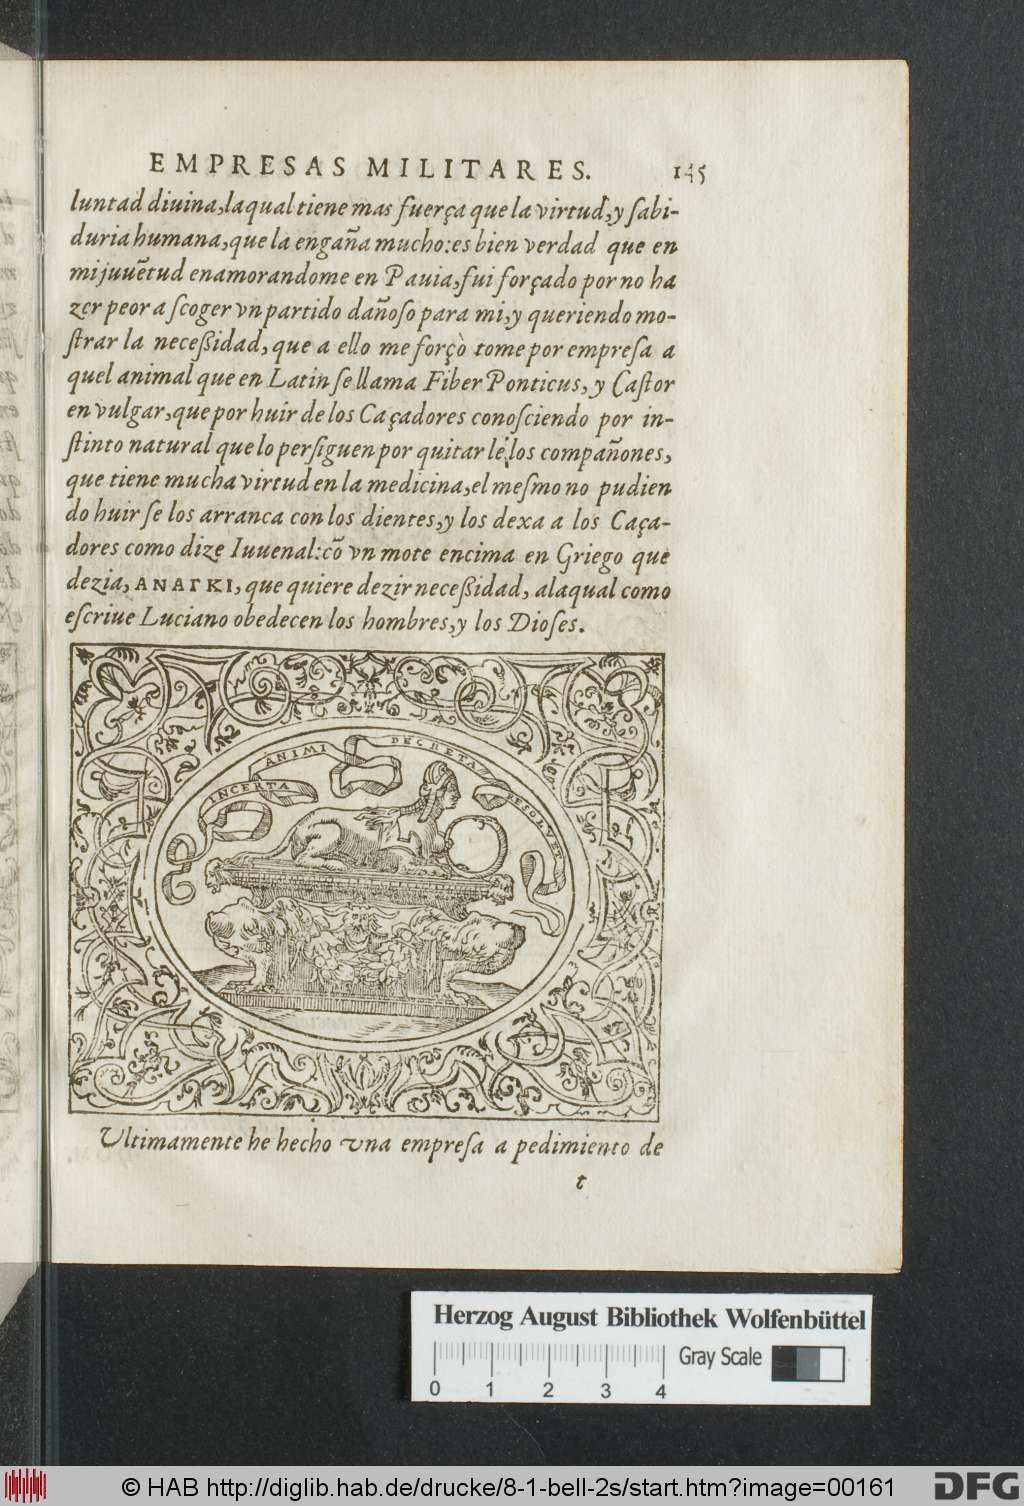 EMPRESAS MILITARES. 145
luntad diuina, laqual tiene mas fuerça que la virtud, y sabi-
duria humana, que la engaña mucho: es bien verdad que en
mi juuētud enamorandome en Pauia, fui forçado por no ha
zer peor a scoger vn partido dañoso para mi, y queriendo mo-
strar la neceßidad, que a ello me forçò tome por empresa a
quel animal que en Latin se llama Fiber Ponticus, y Castor
en vulgar, que por huir de los Caçadores conosciendo por in-
stinto natural que lo persiguen por quitar le los compañones,
que tiene mucha virtud en la medicina, el mesmo no pudien
do huir se los arranca con los dientes, y los dexa a los Caça-
dores como dize Iuuenal: cō vn mote encima en Griego que
dezia, ΑΝΑΓΚΙ, que quiere dezir neceßidad, alaqual como
escriue Luciano obedecen los hombres, y los Dioses.
INCERTA ANIMI DECRETA RESOLVET
Ultimamente he hecho vna empresa a pedimiento de
t
Herzog August Bibliothek Wolfenbüttel
Gray Scale
0 1 2 3 4
© HAB http://diglib.hab.de/drucke/8-1-bell-2s/start.htm?image=00161
DFG